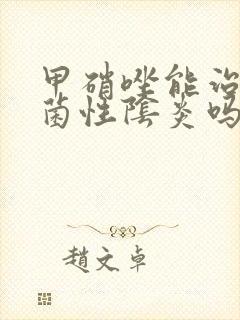 甲硝唑能治
菌性陰炎吗
趙文卓